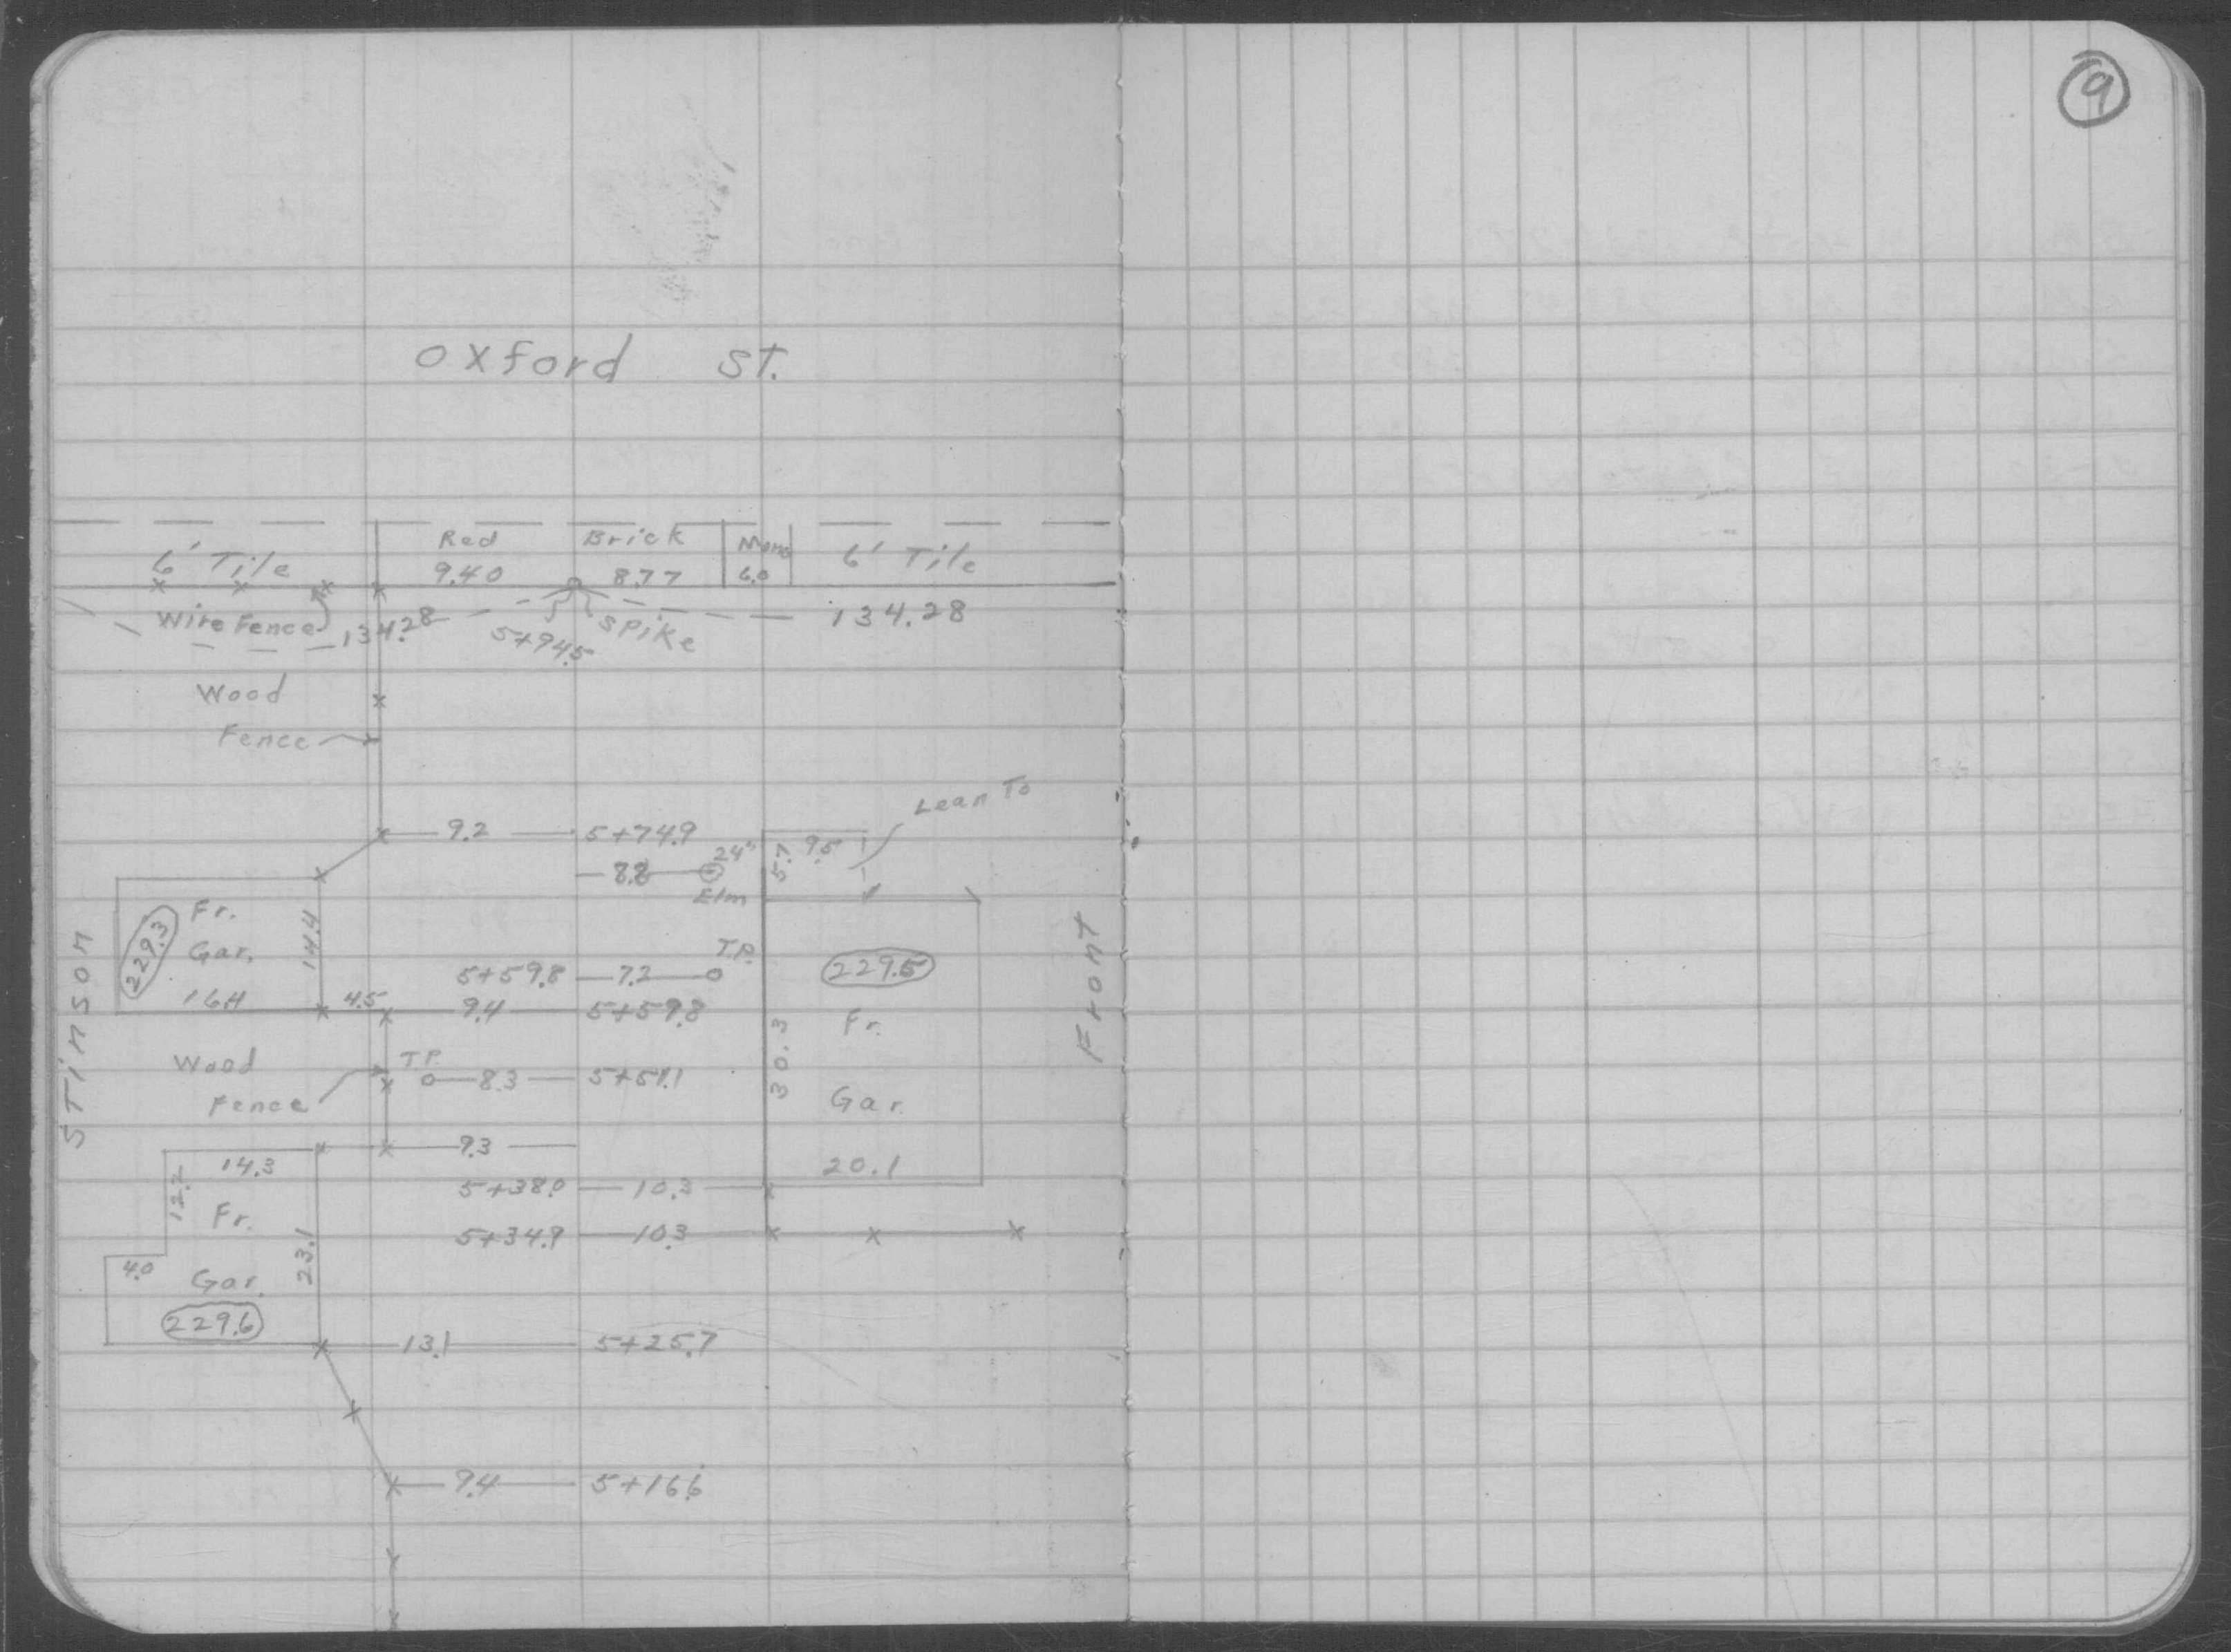 9
Oxford St.
Red Brick Mono
6' Tile 9.40 8.77 6.0 6' Tile
Wire Fence 134.28 5+94.5 Spike 134.28
Wood
Fence
Lean To
9.2 5+74.9
8.8 24" 5.7 9.5
Elm
Fr.
229.3 Gar. 14.4
T.P.
5+59.8 7.2 229.5
4.5 9.4 5+59.8
Stinson
Front
Fr.
Wood T.P.
8.3 5+51.1 30.3
Fence Gar.
9.3
14.3 20.1
5+38.0 10.3
12.2
Fr.
5+34.9 10.3
23.1
4.0 Gar.
229.6
13.1 5+25.7
9.4 5+16.6